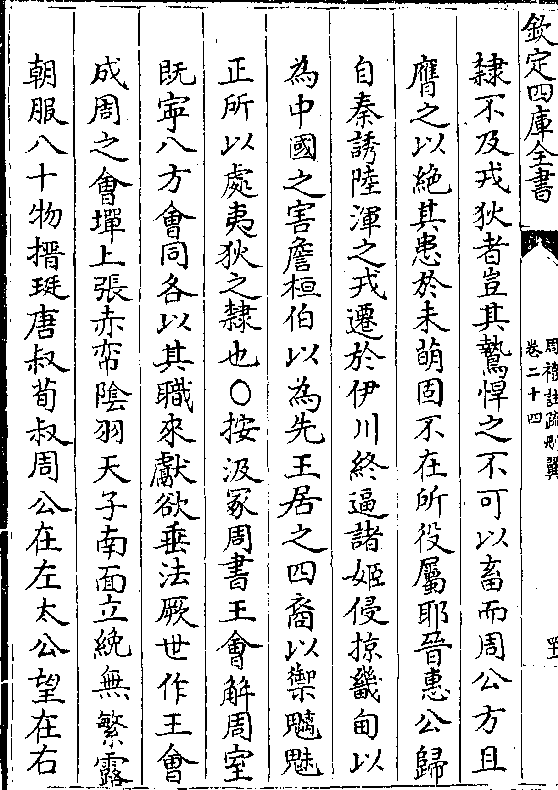 欽定四庫全書
周禮註疏刪翼
卷二十四
隸不及戎狄者豈其鷙悍之不可以畜而周公方且
膺之以絕其患於未萌固不在所役屬耶晉惠公歸
自秦誘陸渾之戎遷於伊川終逼諸姬侵掠畿甸以
為中國之害詹桓伯以為先王居之四裔以禦魑魅
正所以處夷狄之隸也○按汲冢周書王會解周室
既寧八方會同各以其職來獻欲垂法厥世作王會
成周之會墠上張赤帟陰羽天子南面立絻無繁露
朝服八十物搢珽唐叔荀叔周公在左太公望在右